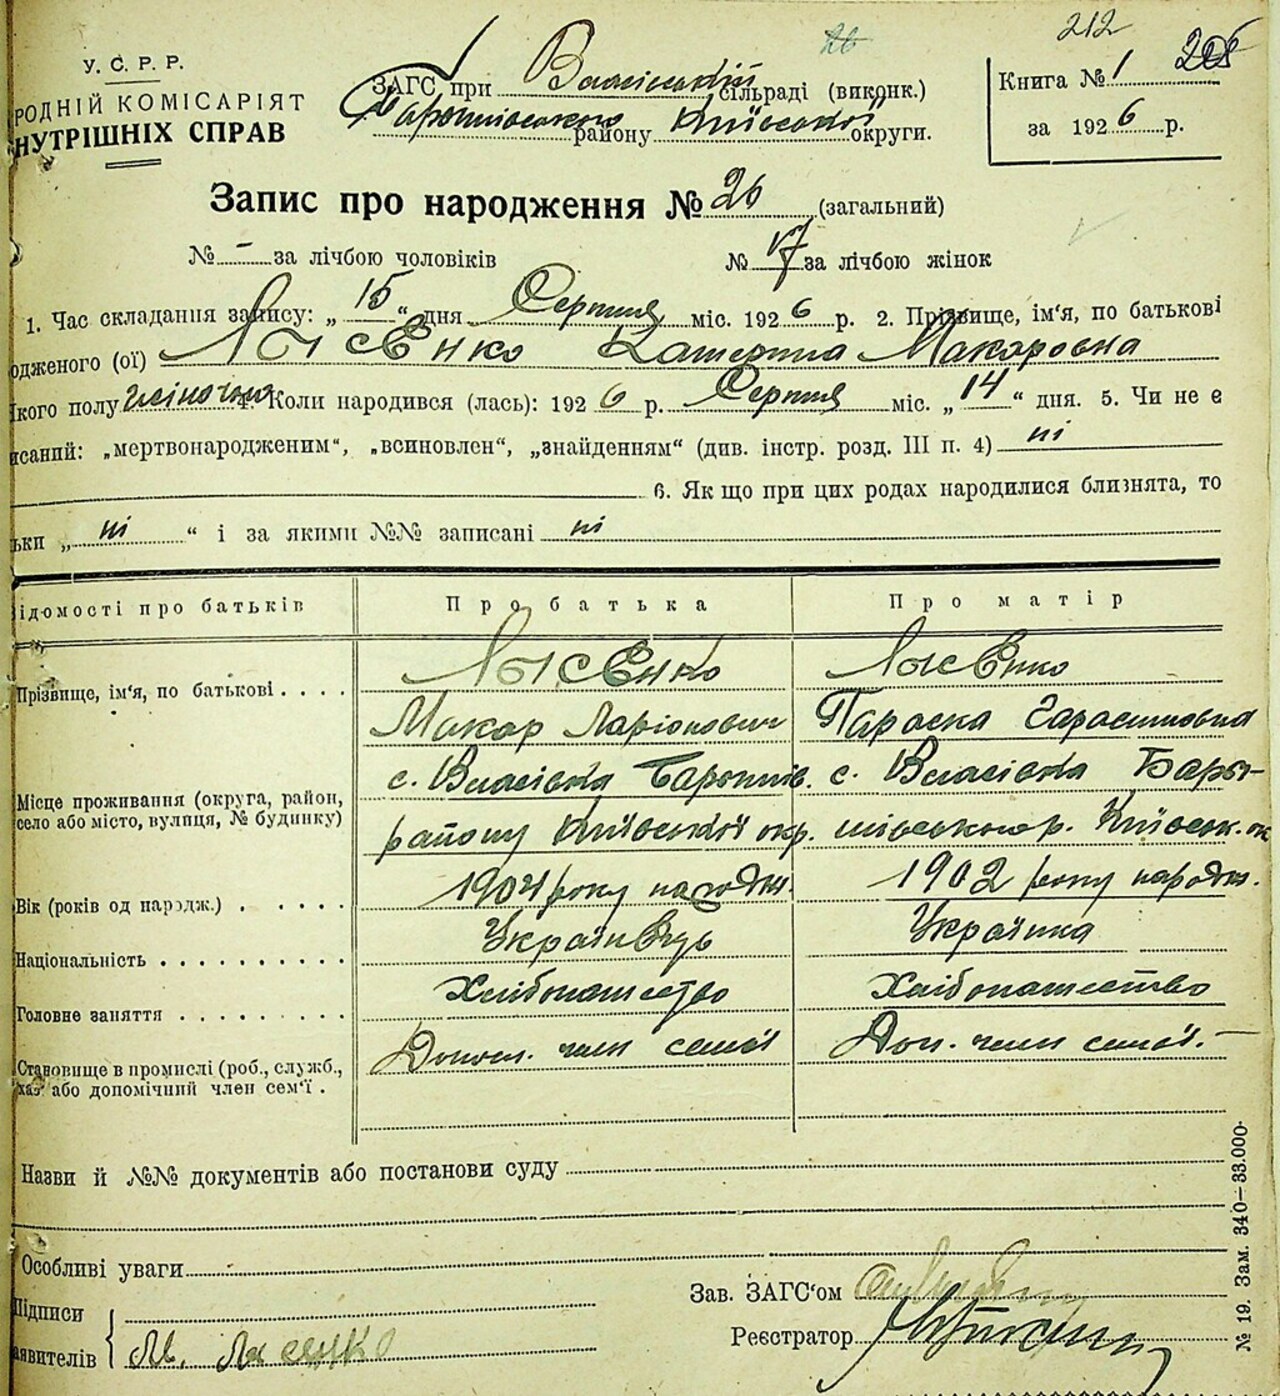 212
26
У. С. Р. Р.
РОДНІЙ КОМІСАРІЯТ
НУТРІШНІХ СПРАВ
ЗАГС при Власівській сільраді (виконк.)
району Київської округи.
Книга № 1 205
за 1926 р.
Запис про народження № 26 (загальний)
№ – за лічбою чоловіків № 17 за лічбою жінок
1. Час складання запису: „ 15 “ дня Серпня міс. 1926 р. 2. Прізвище, ім'я, по батькові
одженого (ої) Лысенко Катерина Макаровна
кого полу жіночия 4. Коли народився (лась): 1926 р. Серпня міс. „ 14 “ дня. 5. Чи не є
исаний: „мертвонародженим“, „всиновлен“, „знайденням“ (див. інстр. розд. III п. 4) ні
6. Як що при цих родах народилися близнята, то
ьки „ ні “ і за якими №№ записані ні
ідомості про батьків Про батька Про матір
Прізвище, ім'я, по батькові . . . . Лысенко Лысенко
Макар Ларіонович Параска Гарасимовна
Місце проживання (округа, район, село або місто, вулиця, № будинку) с. Власівка Баришів. с. Власівка Бари-
району Київської окр. шівського р. Київськ. ок
Вік (років од народж.) . . . . . 1904 року народж. 1902 року народж.
Національність . . . . . . . . . . Українець Українка
Головне заняття . . . . . . . . . Хлібопашество Хлібопашество
Становище в промислі (роб., служб., хаз. або допомічний член сем'ї . Допом. член семії Доп. член семії.
Назви й №№ документів або постанови суду
Особливі уваги
Підписи
аявителів М. Лысенко
Зав. ЗАГС'ом
Реєстратор
№ 19. Зам. 340—33.000.